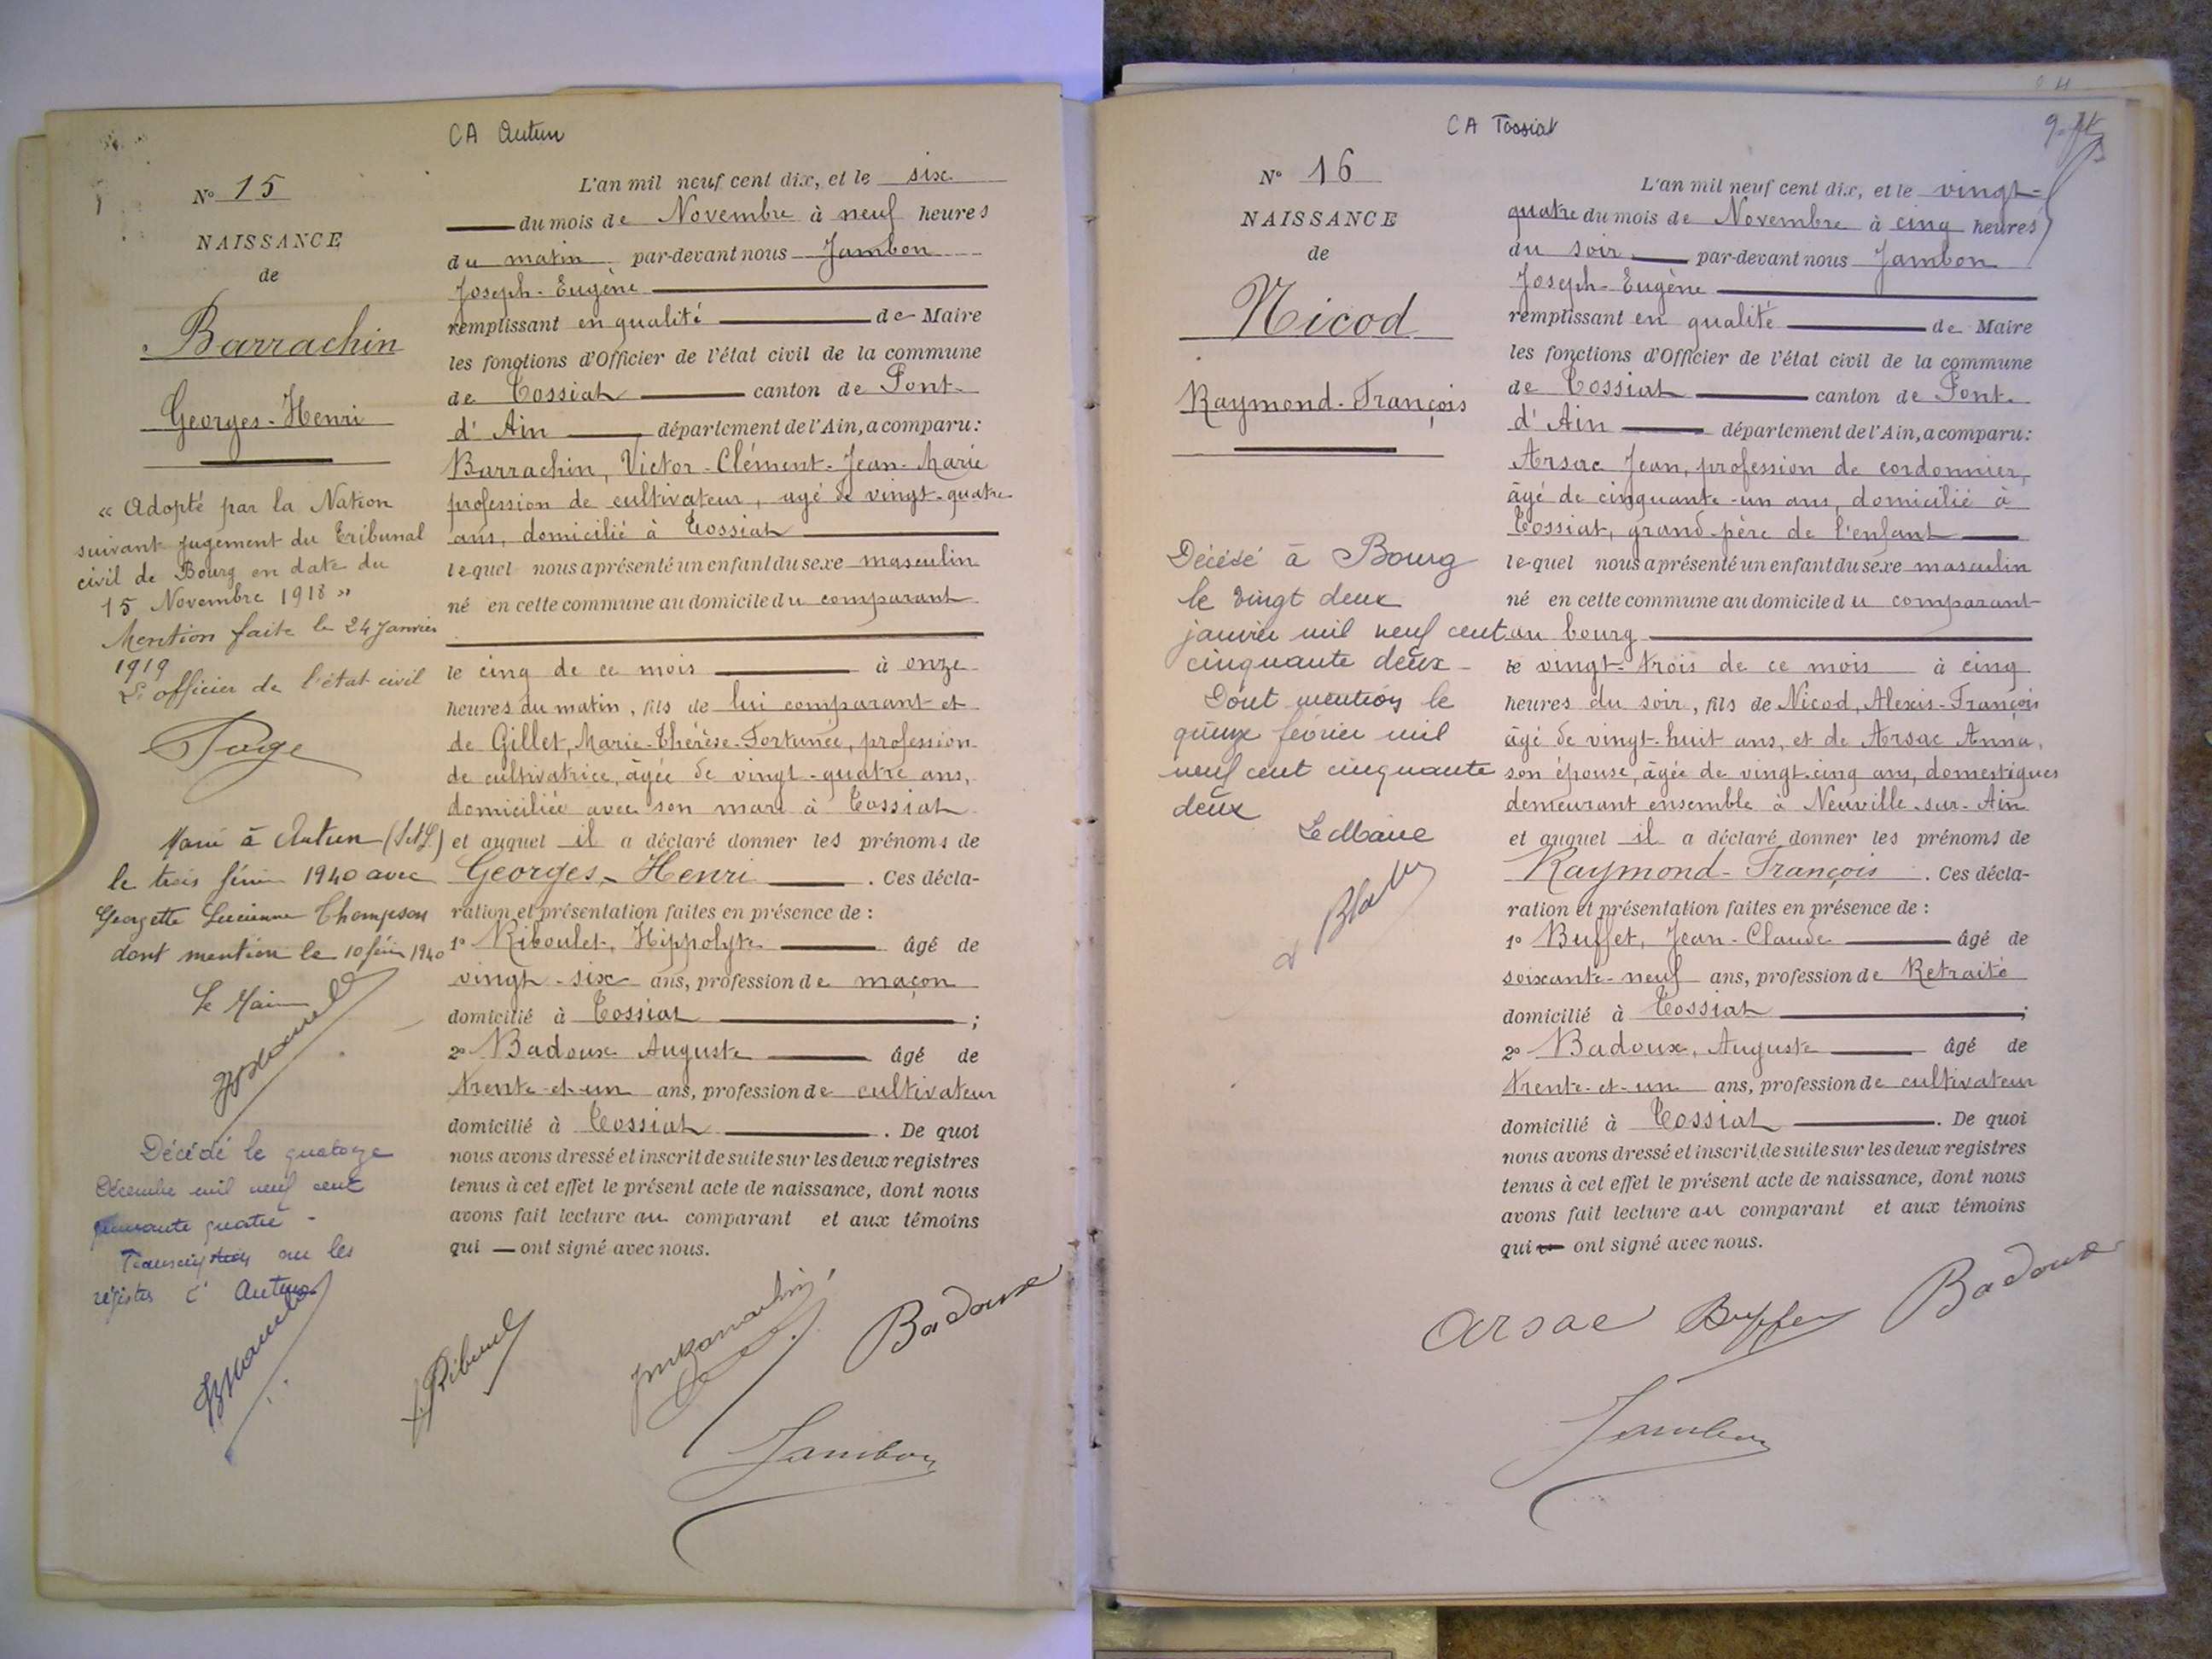 CA Autun
N° 15
NAISSANCE
de
Barrachin
Georges-Henri
« Adopté par la Nation
suivant jugement du Tribunal
civil de Bourg en date du
15 Novembre 1918 »
Mention faite le 24 Janvier
1919
L'officier de l'état civil
Marié à Autun (S.&L.)
le trois février 1940 avec
Georgette Lucienne Thompson
dont mention le 10 février 1940
Le Maire
Décédé le quatorze
Décembre mil neuf cent
quarante quatre -
Transcription sur les
registres d' Autun
L'an mil neuf cent dix, et le six
du mois de Novembre à neuf heures
du matin, par-devant nous Jambon
Joseph-Eugène
remplissant en qualité de Maire
les fonctions d'Officier de l'état civil de la commune
de Tossiat canton de Pont-
d'Ain département de l'Ain, a comparu:
Barrachin, Victor-Clément-Jean-Marie
profession de cultivateur, agé de vingt-quatre
ans, domicilié à Tossiat
lequel nous a présenté un enfant du sexe masculin
né en cette commune au domicile du comparant
le cinq de ce mois à onze
heures du matin, fils de lui comparant et
de Gillet, Marie-Thérèse-Fortunée, profession
de cultivatrice, âgée de vingt-quatre ans,
domiciliée avec son mari à Tossiat
et auquel il a déclaré donner les prénoms de
Georges-Henri. Ces décla-
ration et présentation faites en présence de :
1° Riboulet, Hippolyte âgé de
vingt-six ans, profession de maçon
domicilié à Tossiat ;
2° Badoux Auguste âgé de
trente-et-un ans, profession de cultivateur
domicilié à Tossiat. De quoi
nous avons dressé et inscrit de suite sur les deux registres
tenus à cet effet le présent acte de naissance, dont nous
avons fait lecture au comparant et aux témoins
qui — ont signé avec nous.
Badoux
Jambon
CA Tossiat
N° 16
NAISSANCE
de
Nicod
Raymond-François
Décédé à Bourg
le vingt deux
janvier mil neuf cent
cinquante deux -
Dont mention le
quinze février mil
neuf cent cinquante
deux
Le Maire
L'an mil neuf cent dix, et le vingt-
quatre du mois de Novembre à cinq heures
du soir par-devant nous Jambon
Joseph-Eugène
remplissant en qualité de Maire
les fonctions d'Officier de l'état civil de la commune
de Tossiat canton de Pont-
d'Ain département de l'Ain, a comparu:
Arsac Jean, profession de cordonnier,
âgé de cinquante-un ans, domicilié à
Tossiat, grand-père de l'enfant
lequel nous a présenté un enfant du sexe masculin
né en cette commune au domicile du comparant
au bourg
le vingt-trois de ce mois à cinq
heures du soir, fils de Nicod, Alexis-François
âgé de vingt-huit ans, et de Arsac Anna,
son épouse, âgée de vingt-cinq ans, domestiques
demeurant ensemble à Neuville-sur-Ain
et auquel il a déclaré donner les prénoms de
Raymond-François. Ces décla-
ration et présentation faites en présence de :
1° Buffet, Jean-Claude âgé de
soixante-neuf ans, profession de Retraité
domicilié à Tossiat ;
2° Badoux, Auguste âgé de
trente-et-un ans, profession de cultivateur
domicilié à Tossiat. De quoi
nous avons dressé et inscrit de suite sur les deux registres
tenus à cet effet le présent acte de naissance, dont nous
avons fait lecture au comparant et aux témoins
qui ont signé avec nous.
Arsac Buffet Badoux
Jambon